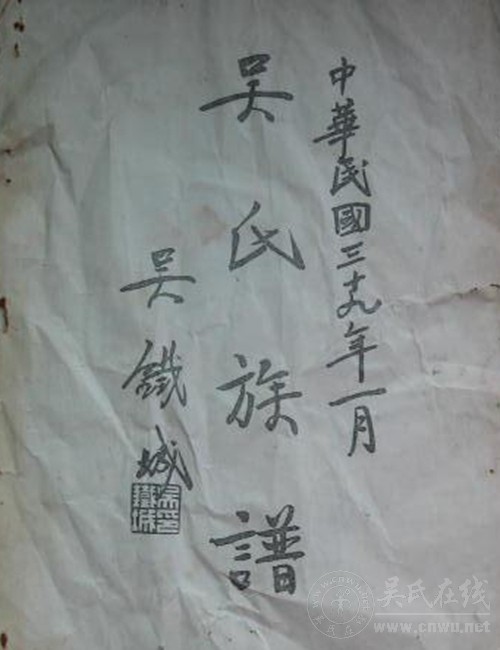 中華民國三十九年一月
吳氏族譜
吳鐵城
吳氏在线
www.cnwu.net